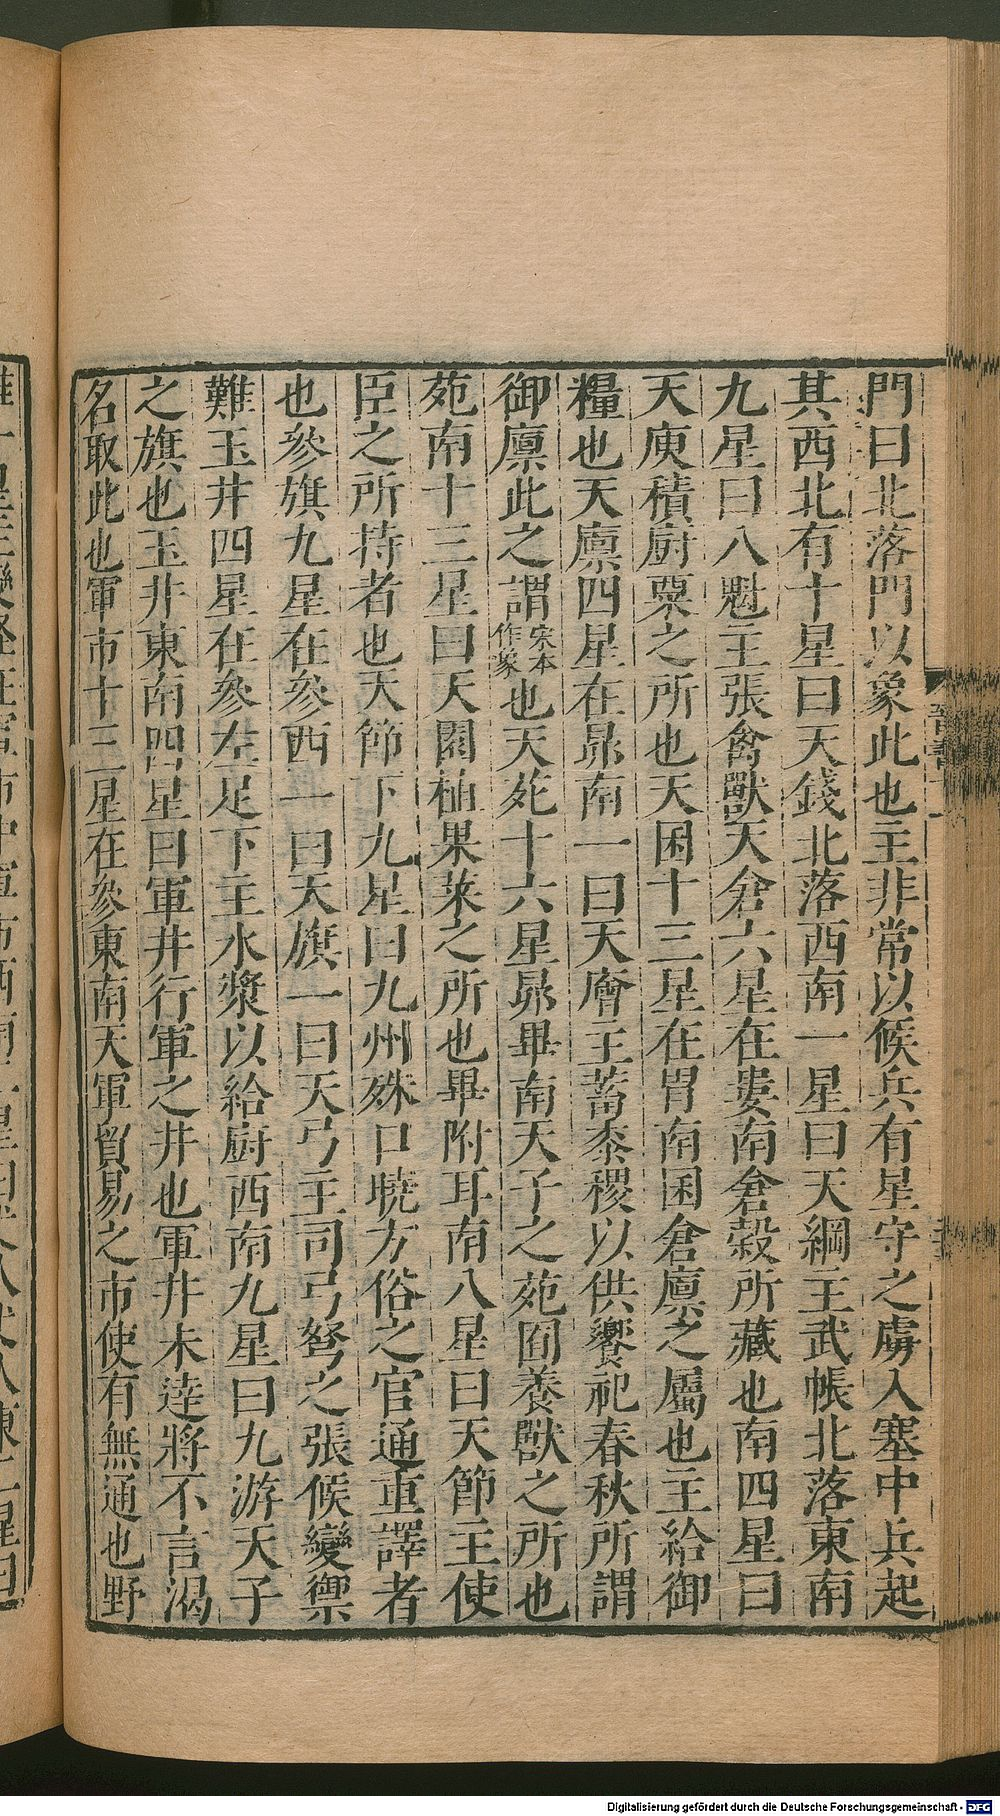 門曰北落門以象此也主非常以候兵有星守之虜入塞中兵起
其西北有十星曰天錢北落西南一星曰天綱主武帳北落東南
九星曰八魁主張禽獸天倉六星在婁南倉穀所藏也南四星曰
天庾積廚粟之所也天囷十三星在胃南囷倉廩之屬也主給御
糧也天廩四星在昴南一曰天廥主蓄黍稷以供饗祀春秋所謂
御廩此之謂宋本作象也天苑十六星昴畢南天子之苑囿養獸之所也
苑南十三星曰天園植果菜之所也畢附耳南八星曰天節主使
臣之所持者也天節下九星曰九州殊口曉方俗之官通重譯者
也參旗九星在參西一曰天旗一曰天弓主司弓弩之張候變禦
難玉井四星在參左足下主水漿以給廚西南九星曰九游天子
之旗也玉井東南四星曰軍井行軍之井也軍井未達將不言渴
名取此也軍市十三星在參東南天軍貿易之市使有無通也野
晉書十一